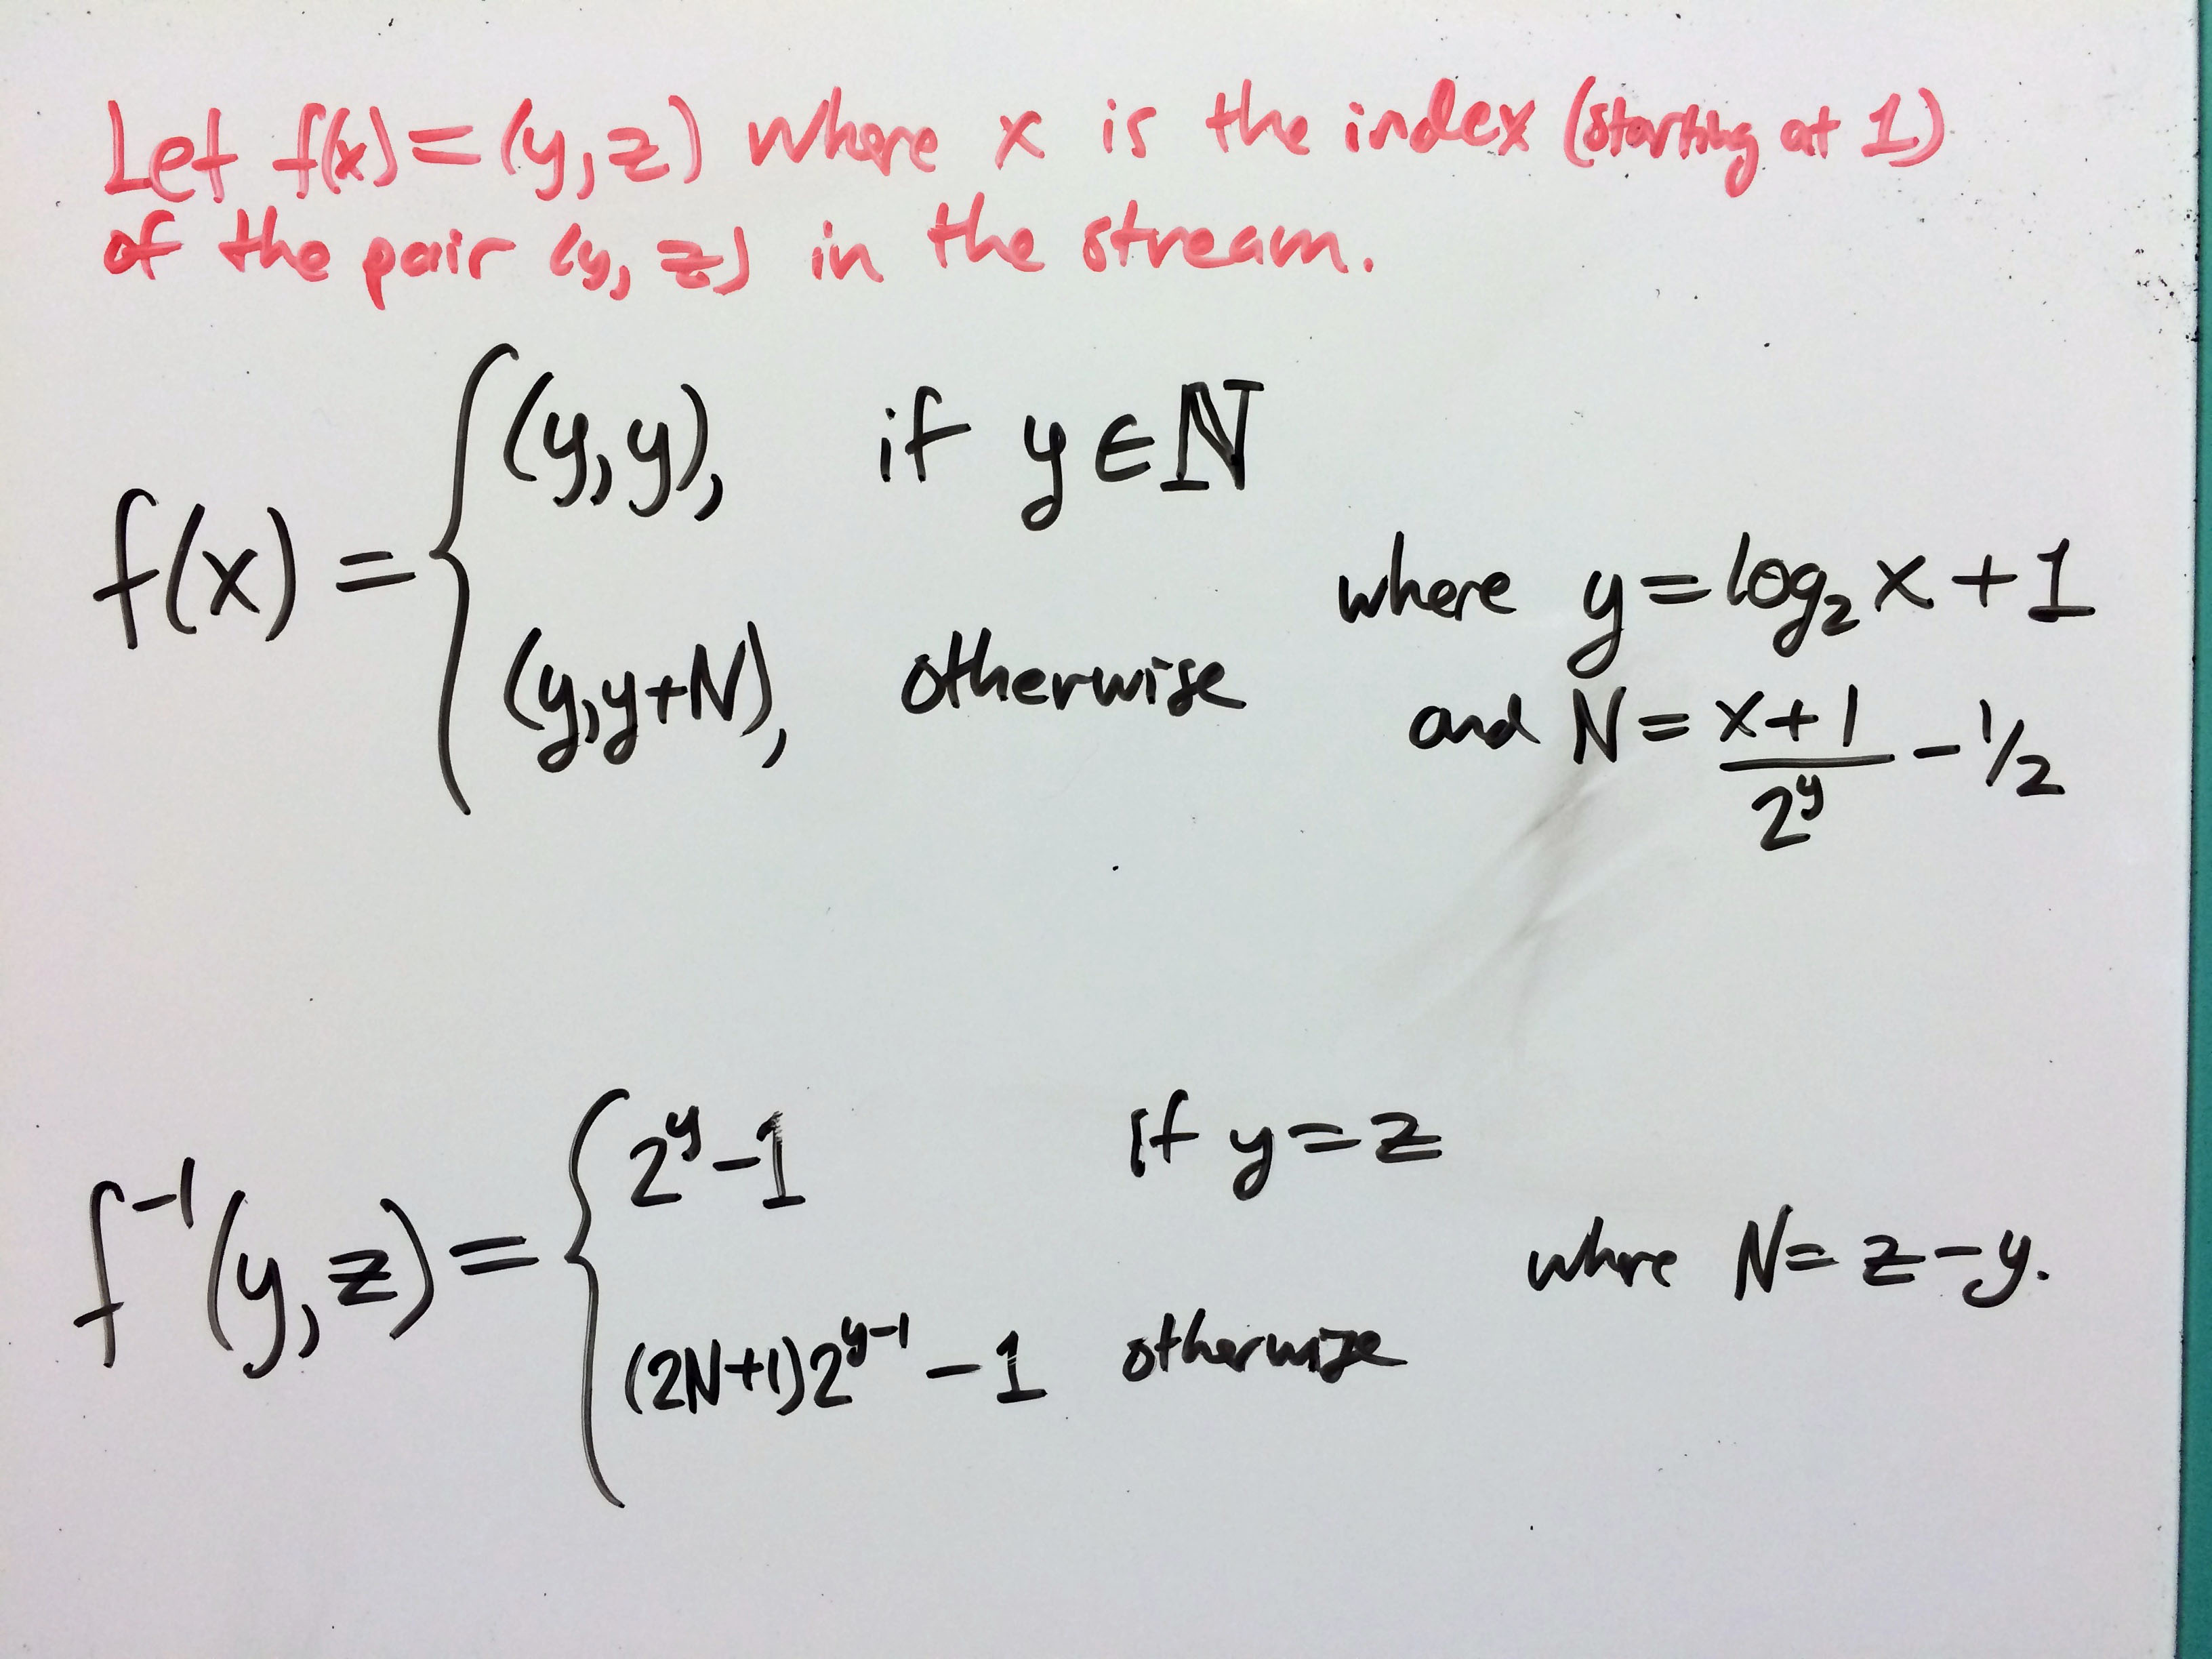 Let f(x) = (y, z) where x is the index (starting at 1)
of the pair (y, z) in the stream.
f(x) = { (y, y), if y ∈ ℕ
(y, y+N), otherwise
where y = log₂ x + 1
and N = (x+1)/2^y - 1/2
f⁻¹(y, z) = { 2^y - 1 if y = z
(2N+1)2^(y-1) - 1 otherwise
where N = z - y.